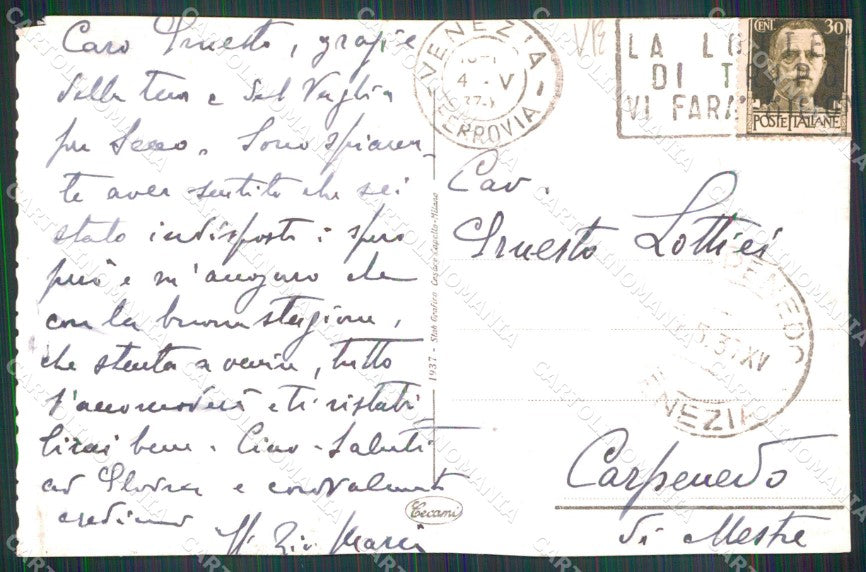 Caro Ernesto, grazie
della tua e del Vaglia
per Sono spiacen-
te aver sentito che sei
stato indisposto: spero
però e m'auguro che
con la buona stagione,
che stenta a venire, tutto
s'accomoderà e ti ristabi
lirai bene. Ciao - Saluti
ad e cordialmente
Zio
VENEZIA
4 V
FERROVIA
LA LO
DI T
VI FARA
CENT 30
POSTE ITALIANE
Cav.
Ernesto Lotti
CARPENEDO
5.37 XV
VENEZIA
Carpenedo
di Mestre
1937 - Stab Grafico Cesare Capello-Milano
Cecami
CARTOLINOMANIA